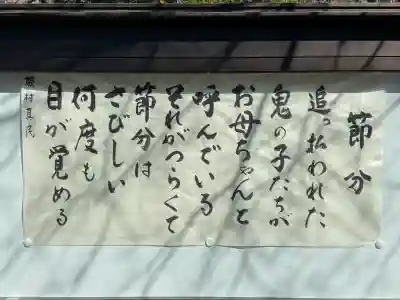 節分
追っ払われた
鬼の子たちが
お母ちゃんと
呼んでいる
それがつらくて
節分は
さびしい
何度も
目が覚める
坂村真民